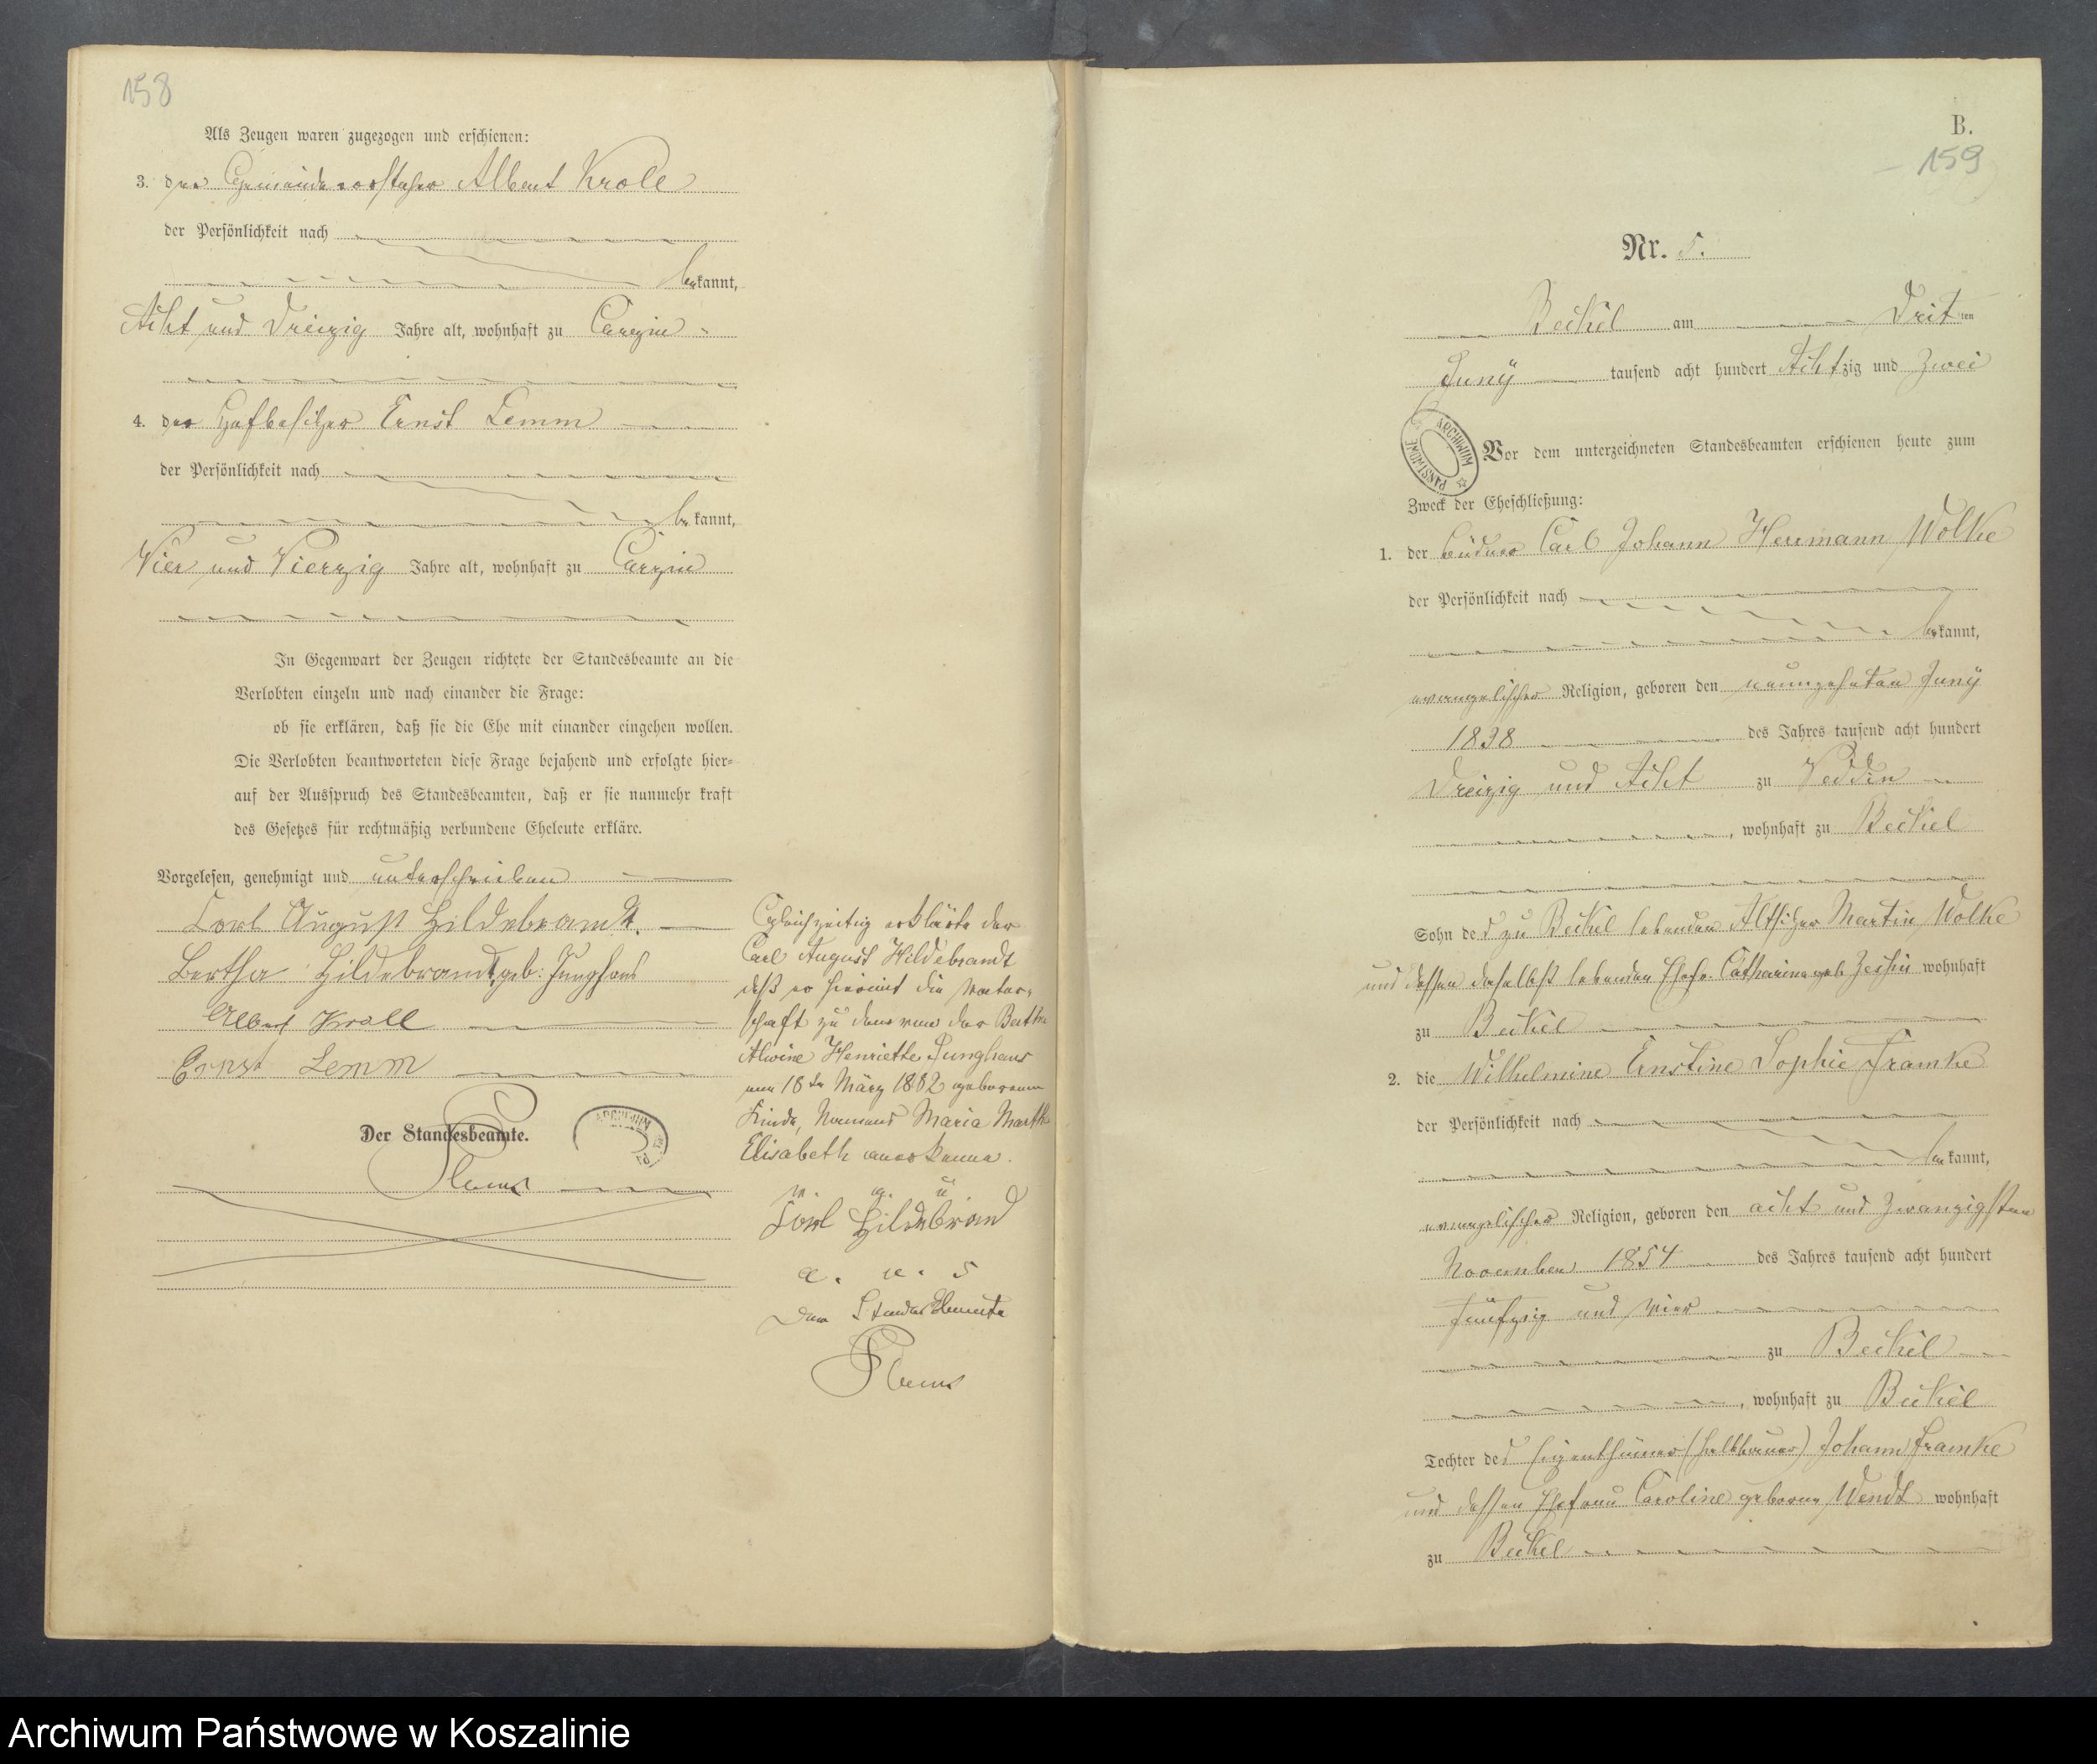 158
Als Zeugen waren zugezogen und erschienen:
3. der Gemeindevorsteher Albert Krole
der Persönlichkeit nach
bekannt,
Acht und Dreizig Jahre alt, wohnhaft zu Carzin
4. der Hofbesitzer Ernst Lemm
der Persönlichkeit nach
bekannt,
Vier und Vierzig Jahre alt, wohnhaft zu Carzin
In Gegenwart der Zeugen richtete der Standesbeamte an die
Verlobten einzeln und nach einander die Frage:
ob sie erklären, daß sie die Ehe mit einander eingehen wollen.
Die Verlobten beantworteten diese Frage bejahend und erfolgte hier-
auf der Ausspruch des Standesbeamten, daß er sie nunmehr kraft
des Gesetzes für rechtmäßig verbundene Eheleute erkläre.
Vorgelesen, genehmigt und unterschrieben
Carl August Hildebrandt.
Bertha Hildebrandt geb: Junghans
Albert Kroll
Ernst Lemm
Der Standesbeamte.
Gleichzeitig erklärte der
Carl August Hildebrandt
daß er hiermit die Vater-
schaft zu dem von der Bertha
Alwine Henriette Junghans
am 18ten März 1882 geborenen
Kinde, Namens Maria Martha
Elisabeth anerkenne.
v. g. u.
Carl Hildebrand
a. u. s
Der Standesbeamte
B.
159
Nr. 5.
Beckel am Dritten
Juny tausend acht hundert Achtzig und Zwei
ARCHIWUM PAŃSTWOWE
Vor dem unterzeichneten Standesbeamten erschienen heute zum
Zweck der Eheschließung:
1. der Büdner Carl Johann Herrmann Wolke
der Persönlichkeit nach
bekannt,
evangelischer Religion, geboren den neunzehnten Juny
1838 des Jahres tausend acht hundert
Dreizig und Acht zu Veddin
, wohnhaft zu Beckel
Sohn des zu Beckel lebenden Altsitzer Martin Wolke
und dessen daselbst lebenden Ehefr. Catharina geb. wohnhaft
zu Beckel
2. die Wilhelmine Ernstine Sophie Framke
der Persönlichkeit nach
bekannt,
evangelischer Religion, geboren den acht und zwanzigsten
November 1854 des Jahres tausend acht hundert
fünfzig und vier
zu Beckel
, wohnhaft zu Beckel
Tochter des Eigenthümer (Halbbauer) Johann Framke
und dessen Ehefrau Caroline geborne Wendt wohnhaft
zu Beckel
Archiwum Państwowe w Koszalinie